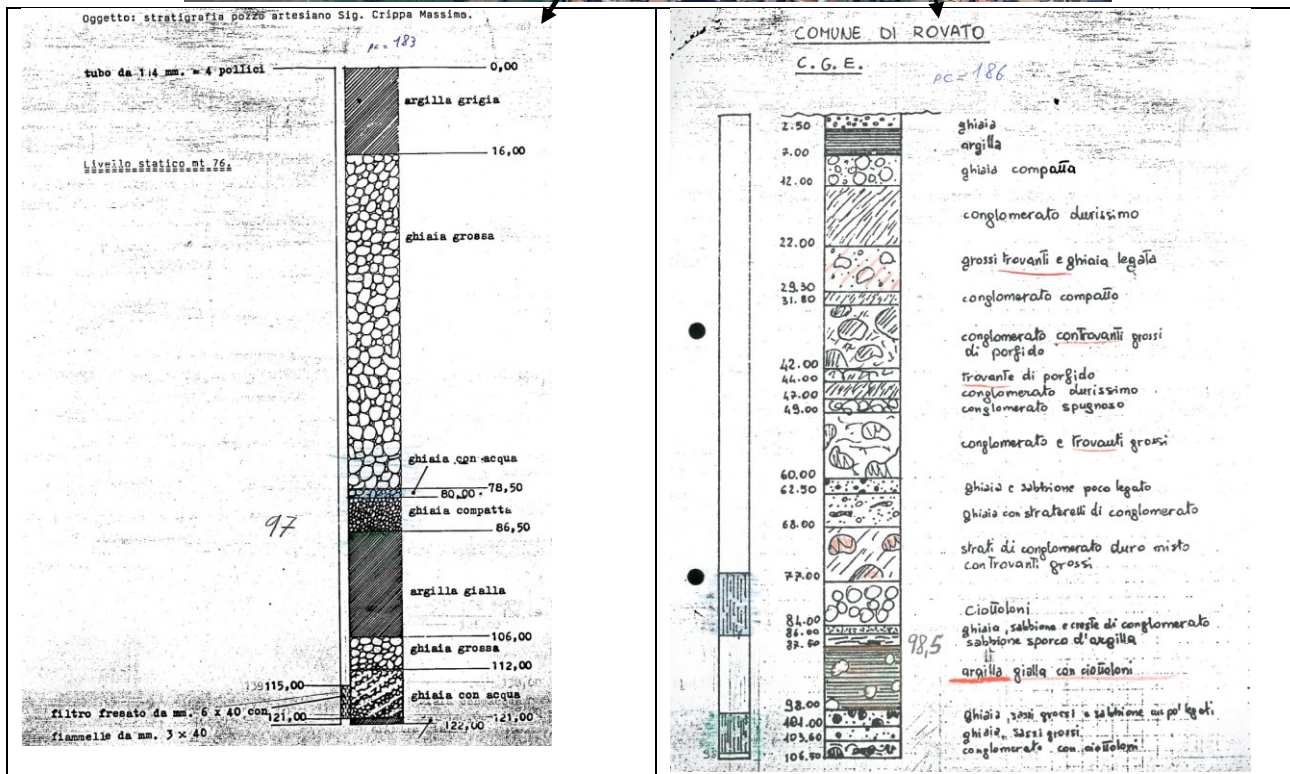 Oggetto: stratigrafia pozzo artesiano Sig. Crippa Massimo.
pc = 183
tubo da 14 mm. = 4 pollici
0,00
argilla grigia
Livello statico mt 76.
16,00
ghiaia grossa
ghiaia con acqua
78,50
80,00
ghiaia compatta
97
86,50
argilla gialla
106,00
ghiaia grossa
112,00
139
115,00
ghiaia con acqua
filtro fresato da mm. 6 x 40 con
121,00
121,00
122,00
fiammelle da mm. 3 x 40
COMUNE DI ROVATO
C. G. E.
pc = 186
2.50
ghiaia
argilla
7.00
ghiaia compatta
12.00
conglomerato durissimo
22.00
grossi trovanti e ghiaia legata
29.30
31.80
conglomerato compatto
conglomerato con trovanti grossi
di porfido
42.00
44.00
trovante di porfido
47.00
conglomerato durissimo
49.00
conglomerato spugnoso
conglomerato e trovanti grossi
60.00
62.50
ghiaia e sabbione poco legato
ghiaia con straterelli di conglomerato
68.00
strati di conglomerato duro misto
con trovanti grossi
77.00
Ciottoloni
84.00
86.00
ghiaia, sabbione e creste di conglomerato
87.50
sabbione sporco d'argilla
98,5
argilla gialla con ciottoloni
98.00
101.00
ghiaia, sassi grossi e sabbione un po' legati
103.60
ghiaia, sassi grossi
106.50
conglomerato con ciottoloni